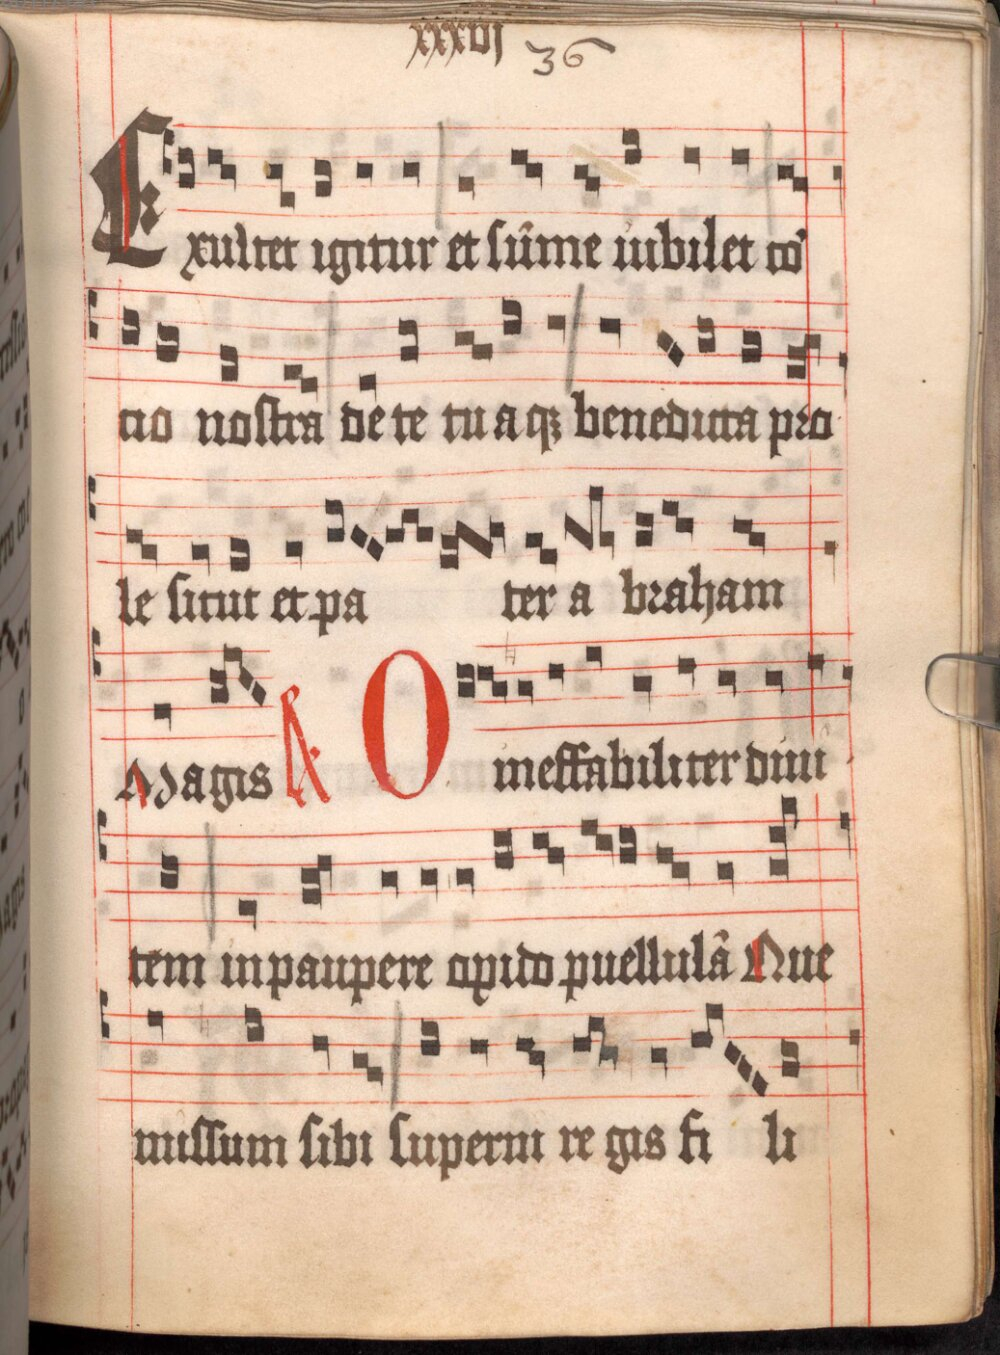 xxxvj 36
Exultet igitur et sūme iubilet co
tio nostra de te tu a qꝫ benedicta pro
le sicut et pa ter a braham
Magis R O ineffabiliter diui
tem in paupere opido puellulā Que
missum sibi superni re gis fi li